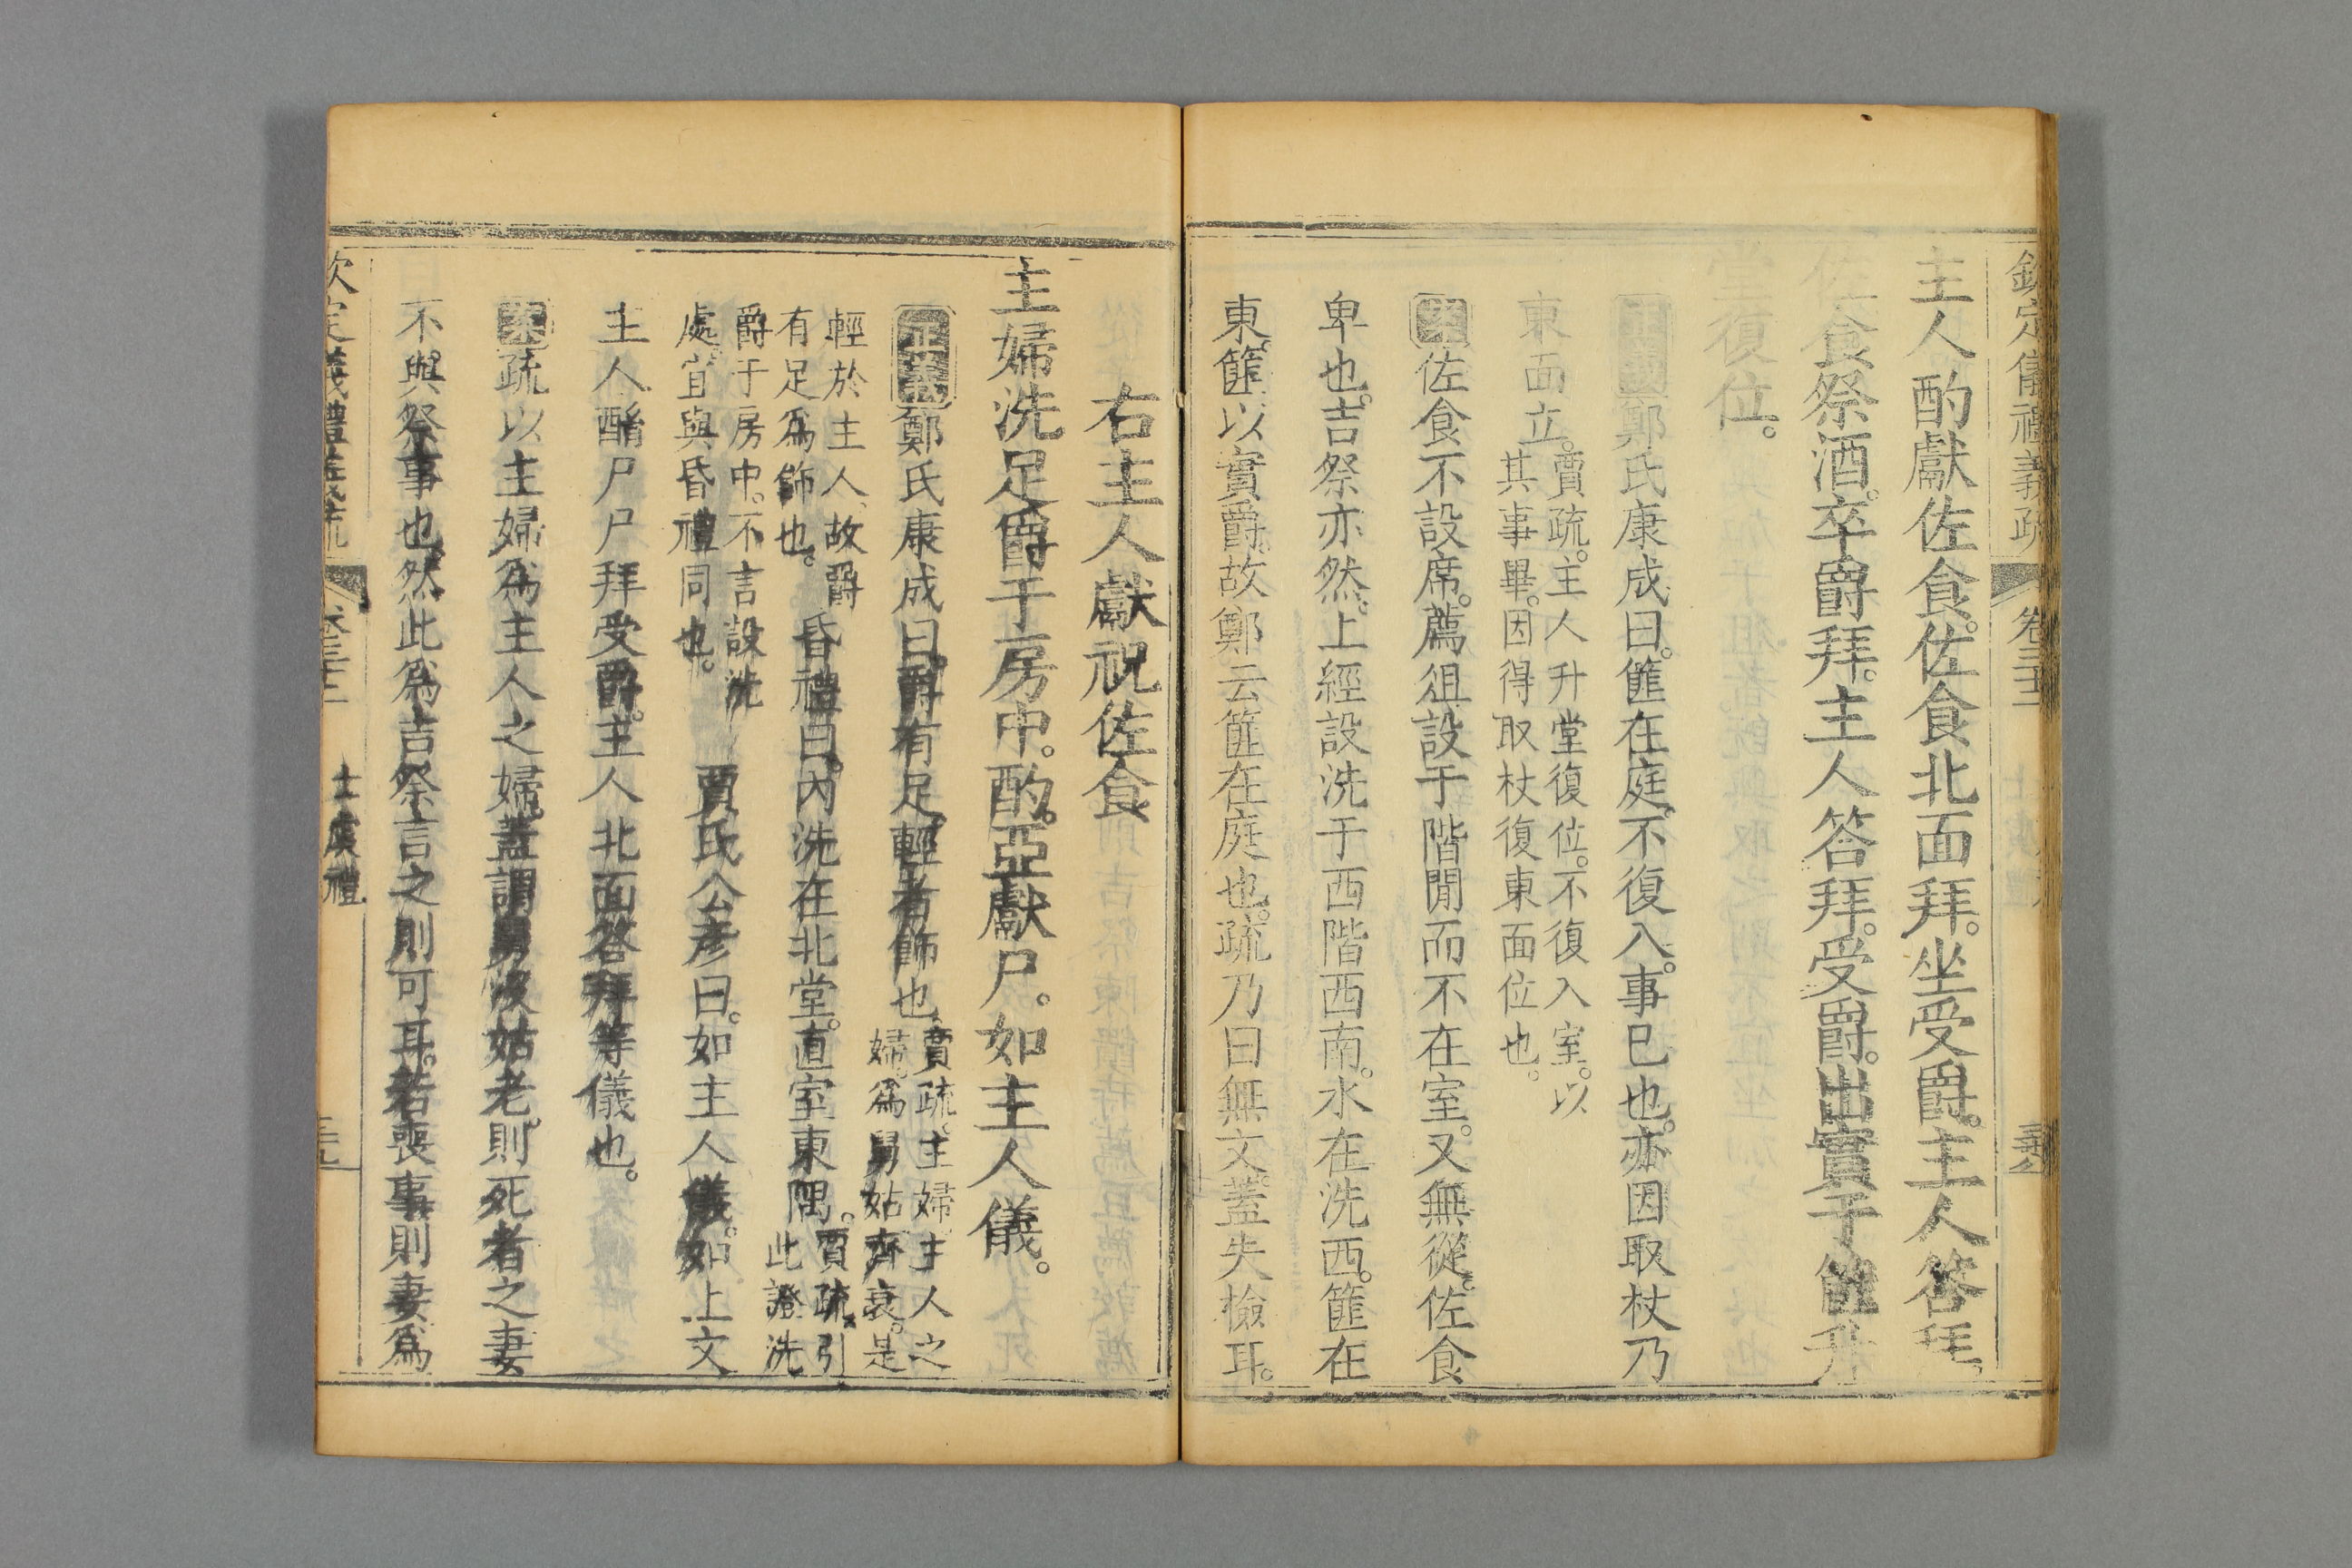 欽定儀禮義疏 卷三十二
主人酌獻佐食。佐食北面拜。坐受爵。主人答拜。
佐食祭酒。卒爵拜。主人答拜。受爵。出實于篚。升
堂復位。
正義鄭氏康成曰。篚在庭。不復入。事已也。亦因取杖乃
東面立。賈疏。主人升堂復位。不復入室。以
其事畢。因得取杖復東面位也。
案佐食不設席。薦俎設于階閒而不在室。又無從。佐食
卑也。吉祭亦然。上經設洗于西階西南。水在洗西。篚在
東。篚以實爵。故鄭云篚在庭也。疏乃曰無文。蓋失檢耳。
右主人獻祝佐食
主婦洗足爵于房中。酌。亞獻尸。如主人儀。
正義鄭氏康成曰。爵有足。輕者飾也。賈疏。主婦。主人之
婦。爲舅姑齊衰。是
輕於主人。故爵
有足爲飾也。昏禮曰。內洗在北堂。直室東隅。賈疏。引
此證洗
爵于房中。不言設洗
處。宜與昏禮同也。賈氏公彥曰。如主人儀。如上文
主人酳尸尸拜受爵。主人北面答拜等儀也。
案疏以主婦爲主人之婦。蓋謂舅沒姑老。則死者之妻
不與祭事也。然此爲吉祭言之則可耳。若喪事則妻爲
欽定儀禮義疏 卷三十二 士虞禮 三十九